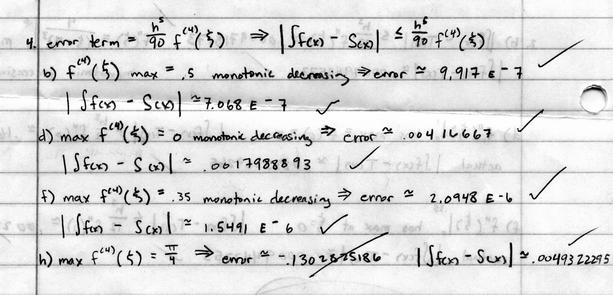 4. error term = h⁵/90 f⁽⁴⁾(ξ) ⇒ |∫f(x) - S(x)| ≤ h⁵/90 f⁽⁴⁾(ξ)
b) f⁽⁴⁾(ξ) max = .5 monotonic decreasing ⇒ error ≈ 9.917 E-7 ✓
|∫f(x) - S(x)| ≈ 7.068 E-7 ✓
d) max f⁽⁴⁾(ξ) = 0 monotonic decreasing ⇒ error ≈ .00416667 ✓
|∫f(x) - S(x)| ≈ .0017988893 ✓
f) max f⁽⁴⁾(ξ) = .35 monotonic decreasing ⇒ error ≈ 2.0948 E-6 ✓
|∫f(x) - S(x)| ≈ 1.5491 E-6 ✓
h) max f⁽⁴⁾(ξ) = π/4 ⇒ error ≈ -.1302825186 |∫f(x) - S(x)| ≈ .0049322295 ✓